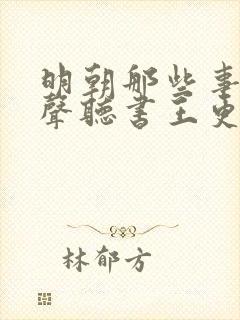 明朝那些事
聲聽書王更
林郁方